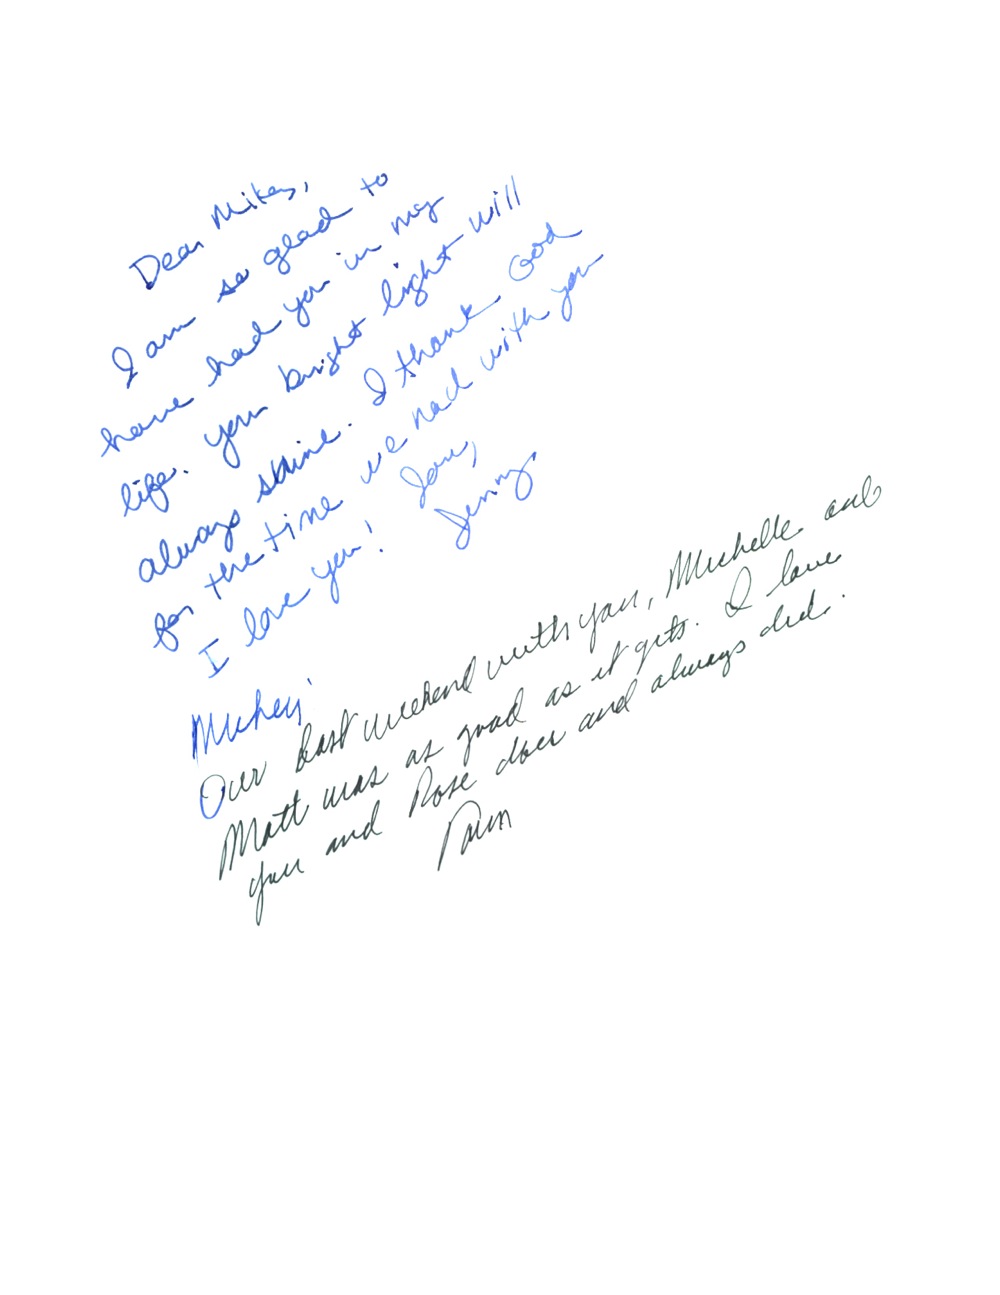 Dear Mikey,
I am so glad to
have had you in my
life. Your bright light will
always shine. I thank God
for the time we had with you
I love you! Love,
Jenny
Mickey,
Our last weekend with you, Michelle and
Matt was as good as it gets. I love
you and Rose does and always did.